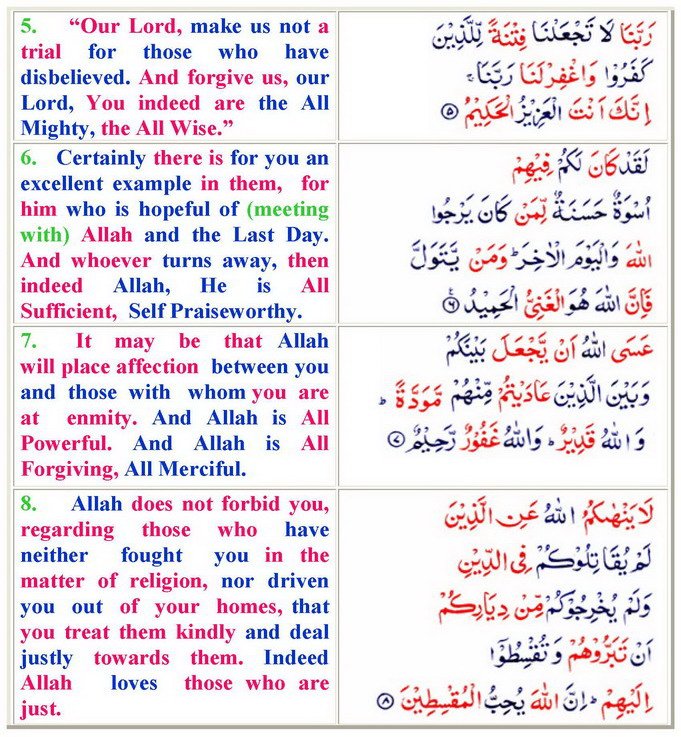 5. “Our Lord, make us not a
trial for those who have
disbelieved. And forgive us, our
Lord, You indeed are the All
Mighty, the All Wise.”
رَبَّنَا لَا تَجْعَلْنَا فِتْنَةً لِّلَّذِيْنَ
كَفَرُوْا وَاغْفِرْ لَنَا رَبَّنَا ۚ
اِنَّكَ اَنْتَ الْعَزِيْزُ الْحَكِيْمُ ۝۵
6. Certainly there is for you an
excellent example in them, for
him who is hopeful of (meeting
with) Allah and the Last Day.
And whoever turns away, then
indeed Allah, He is All
Sufficient, Self Praiseworthy.
لَقَدْ كَانَ لَكُمْ فِيْهِمْ
اُسْوَةٌ حَسَنَةٌ لِّمَنْ كَانَ يَرْجُوا
اللّٰهَ وَالْيَوْمَ الْاٰخِرَ ؕ وَمَنْ يَّتَوَلَّ
فَاِنَّ اللّٰهَ هُوَ الْغَنِيُّ الْحَمِيْدُ ۝۶
7. It may be that Allah
will place affection between you
and those with whom you are
at enmity. And Allah is All
Powerful. And Allah is All
Forgiving, All Merciful.
عَسَى اللّٰهُ اَنْ يَّجْعَلَ بَيْنَكُمْ
وَبَيْنَ الَّذِيْنَ عَادَيْتُمْ مِّنْهُمْ مَّوَدَّةً ؕ
وَاللّٰهُ قَدِيْرٌ ؕ وَاللّٰهُ غَفُوْرٌ رَّحِيْمٌ ۝۷
8. Allah does not forbid you,
regarding those who have
neither fought you in the
matter of religion, nor driven
you out of your homes, that
you treat them kindly and deal
justly towards them. Indeed
Allah loves those who are
just.
لَا يَنْهٰىكُمُ اللّٰهُ عَنِ الَّذِيْنَ
لَمْ يُقَاتِلُوْكُمْ فِي الدِّيْنِ
وَلَمْ يُخْرِجُوْكُمْ مِّنْ دِيَارِكُمْ
اَنْ تَبَرُّوْهُمْ وَتُقْسِطُوْۤا
اِلَيْهِمْ ؕ اِنَّ اللّٰهَ يُحِبُّ الْمُقْسِطِيْنَ ۝۸